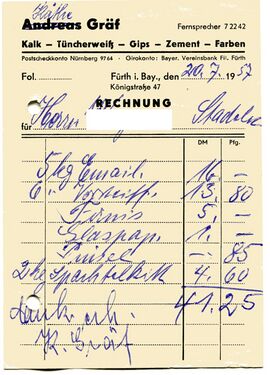 Käthe
Andreas Gräf
Fernsprecher 7 22 42
Kalk – Tüncherweiß – Gips – Zement – Farben
Postscheckkonto Nürnberg 9764 · Girokonto: Bayer. Vereinsbank Fil. Fürth
Fol. Fürth i. Bay., den 20.7. 1957
Königstraße 47
RECHNUNG
für Herrn Stadeln
DM Pfg.
5 kg Email. 16 –
6 " 13. 80
Firnis 5. –
Glaspap. 1. –
Pinsel –. 85
2 kg Spachtelkitt 4. 60
41. 25
Dank erh.
K. Gräf